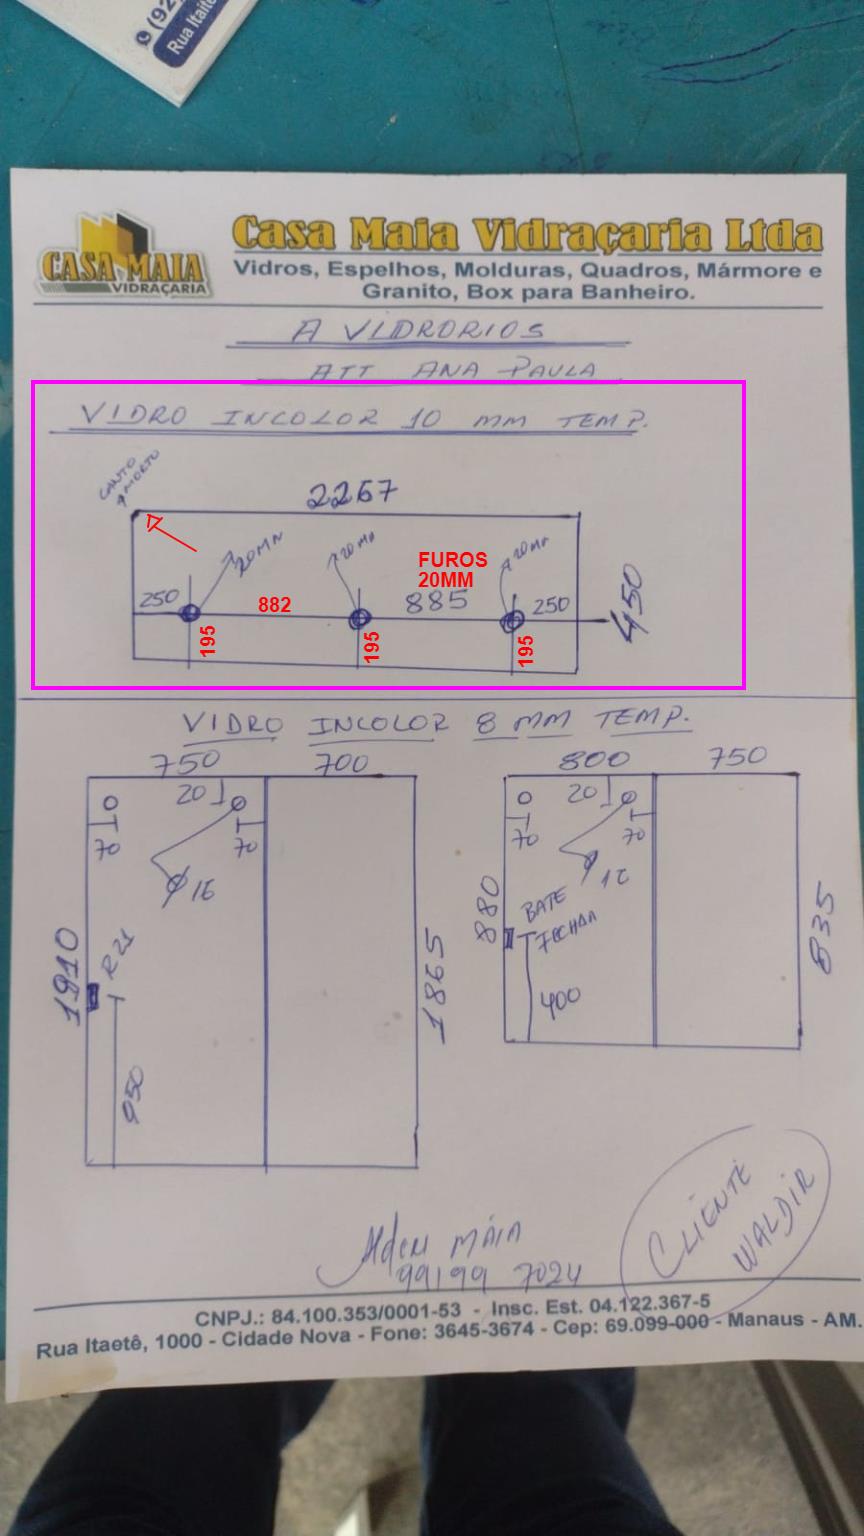 (92
Rua Itaitê
CASA MAIA
VIDRAÇARIA
Casa Maia Vidraçaria Ltda
Vidros, Espelhos, Molduras, Quadros, Mármore e
Granito, Box para Banheiro.
A VIDRORIOS
ATT ANA PAULA
VIDRO INCOLOR 10 MM TEMP.
CANTO
MORTO
2267
20MM
20 MM
20MM
FUROS
20MM
250
882
885
250
450
195
195
195
VIDRO INCOLOR 8 MM TEMP.
750
700
800
750
20
20
70
70
70
70
Ø16
880
BATE
FECHDA
835
R21
1910
1865
400
950
CLIENTE
WALDIR
MAIA
99199 7024
CNPJ.: 84.100.353/0001-53 - Insc. Est. 04.122.367-5
Rua Itaetê, 1000 - Cidade Nova - Fone: 3645-3674 - Cep: 69.099-000 - Manaus - AM.